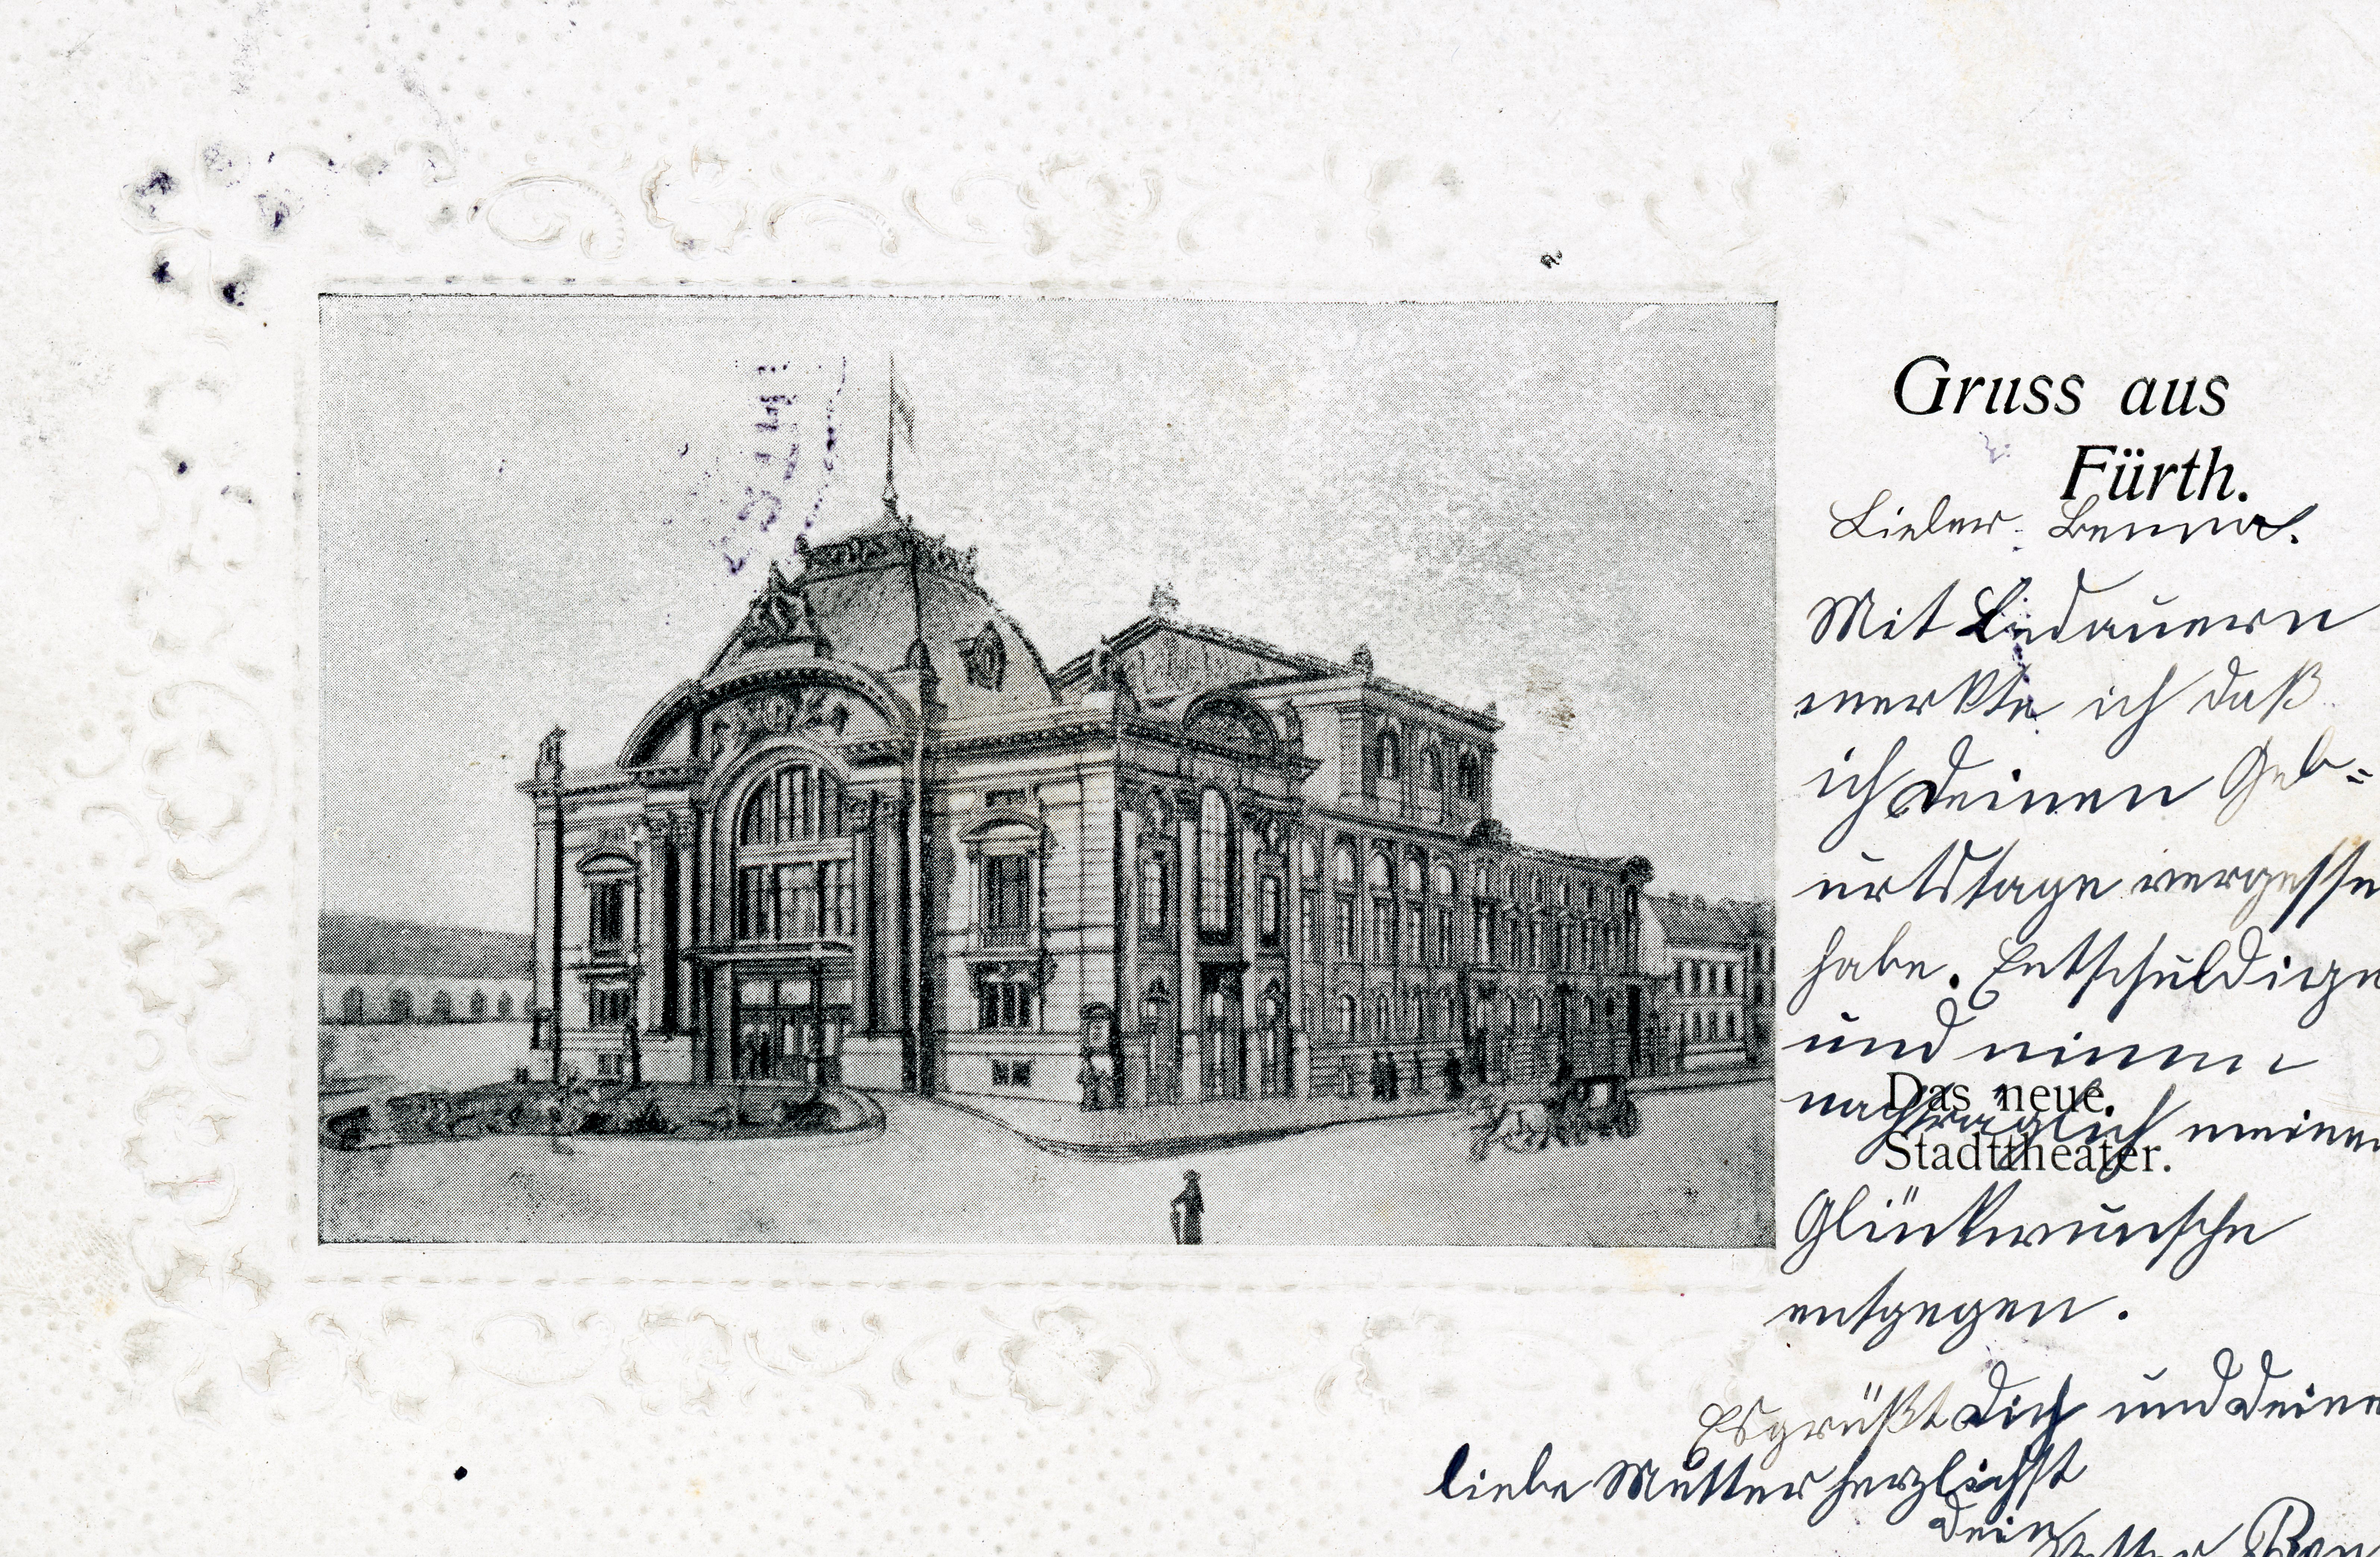 Gruss aus
Fürth.
Lieber Benno.
Mit Bedauern
merkte ich daß
ich deinen Geb=
urtstage vergesse
habe. Entschuldige
und nimm
nachträglich meine
Das neue
Stadttheater.
Glückwunsche
entgegen.
Es grüßt dich und deine
liebe Mutter herzlichst
dein
Vetter